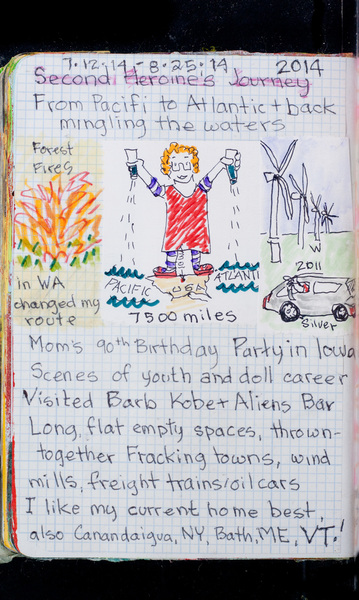 7.12.14 - 8.25.14 2014
Second Heroine's Journey
From Pacifi to Atlantic + back
mingling the waters
Forest
Fires
In WA
changed my
route
PACIFIC
USA
ATLANTI
7500 miles
W
2011
Silver
Mom's 90th Birthday Party in Iowa
Scenes of youth and doll career
Visited Barb Kobe + Aliens Bar
Long, flat empty spaces, thrown-
together Fracking towns, wind
mills, freight trains/oil cars
I like my current home best,
also Canandaigua, NY, Bath, ME, VT.!